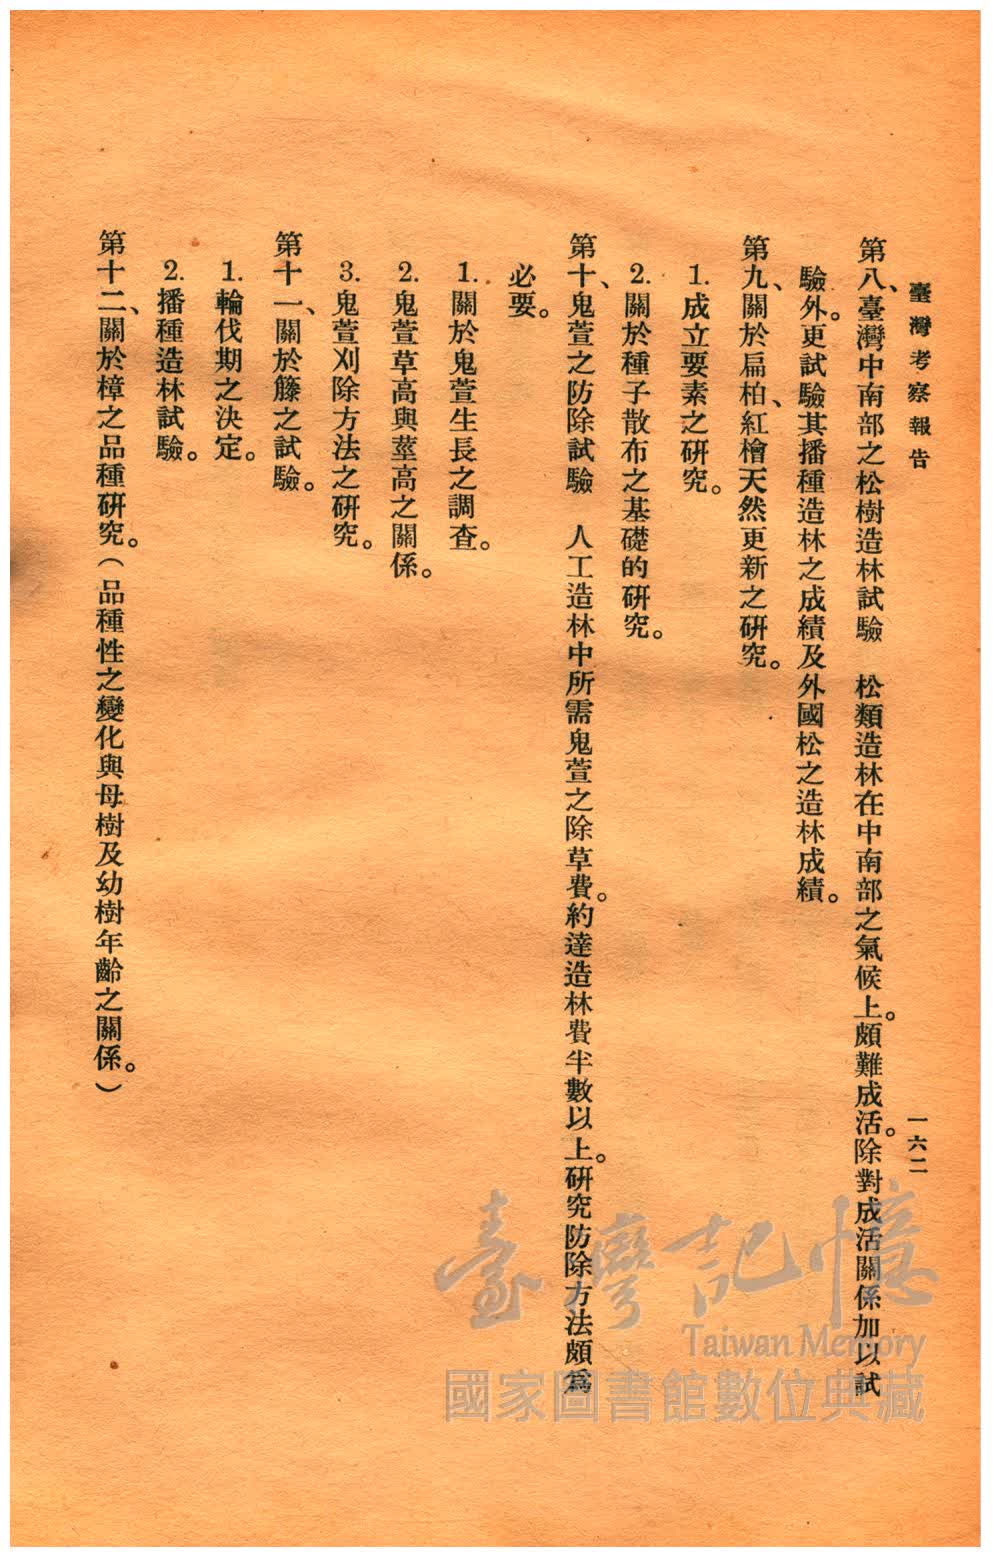 臺灣考察報告
一六二
第八、臺灣中南部之松樹造林試驗　松類造林在中南部之氣候上。頗難成活。除對成活關係加以試
驗外。更試驗其播種造林之成績及外國松之造林成績。
第九、關於扁柏、紅檜天然更新之研究。
1. 成立要素之研究。
2. 關於種子散布之基礎的研究。
第十、鬼萱之防除試驗　人工造林中所需鬼萱之除草費。約達造林費半數以上。研究防除方法頗爲
必要。
1. 關於鬼萱生長之調查。
2. 鬼萱草高與莖高之關係。
3. 鬼萱刈除方法之研究。
第十一、關於籐之試驗。
1. 輪伐期之決定。
2. 播種造林試驗。
第十二、關於樟之品種研究。（品種性之變化與母樹及幼樹年齡之關係。）
臺灣記憶
Taiwan Memory
國家圖書館數位典藏